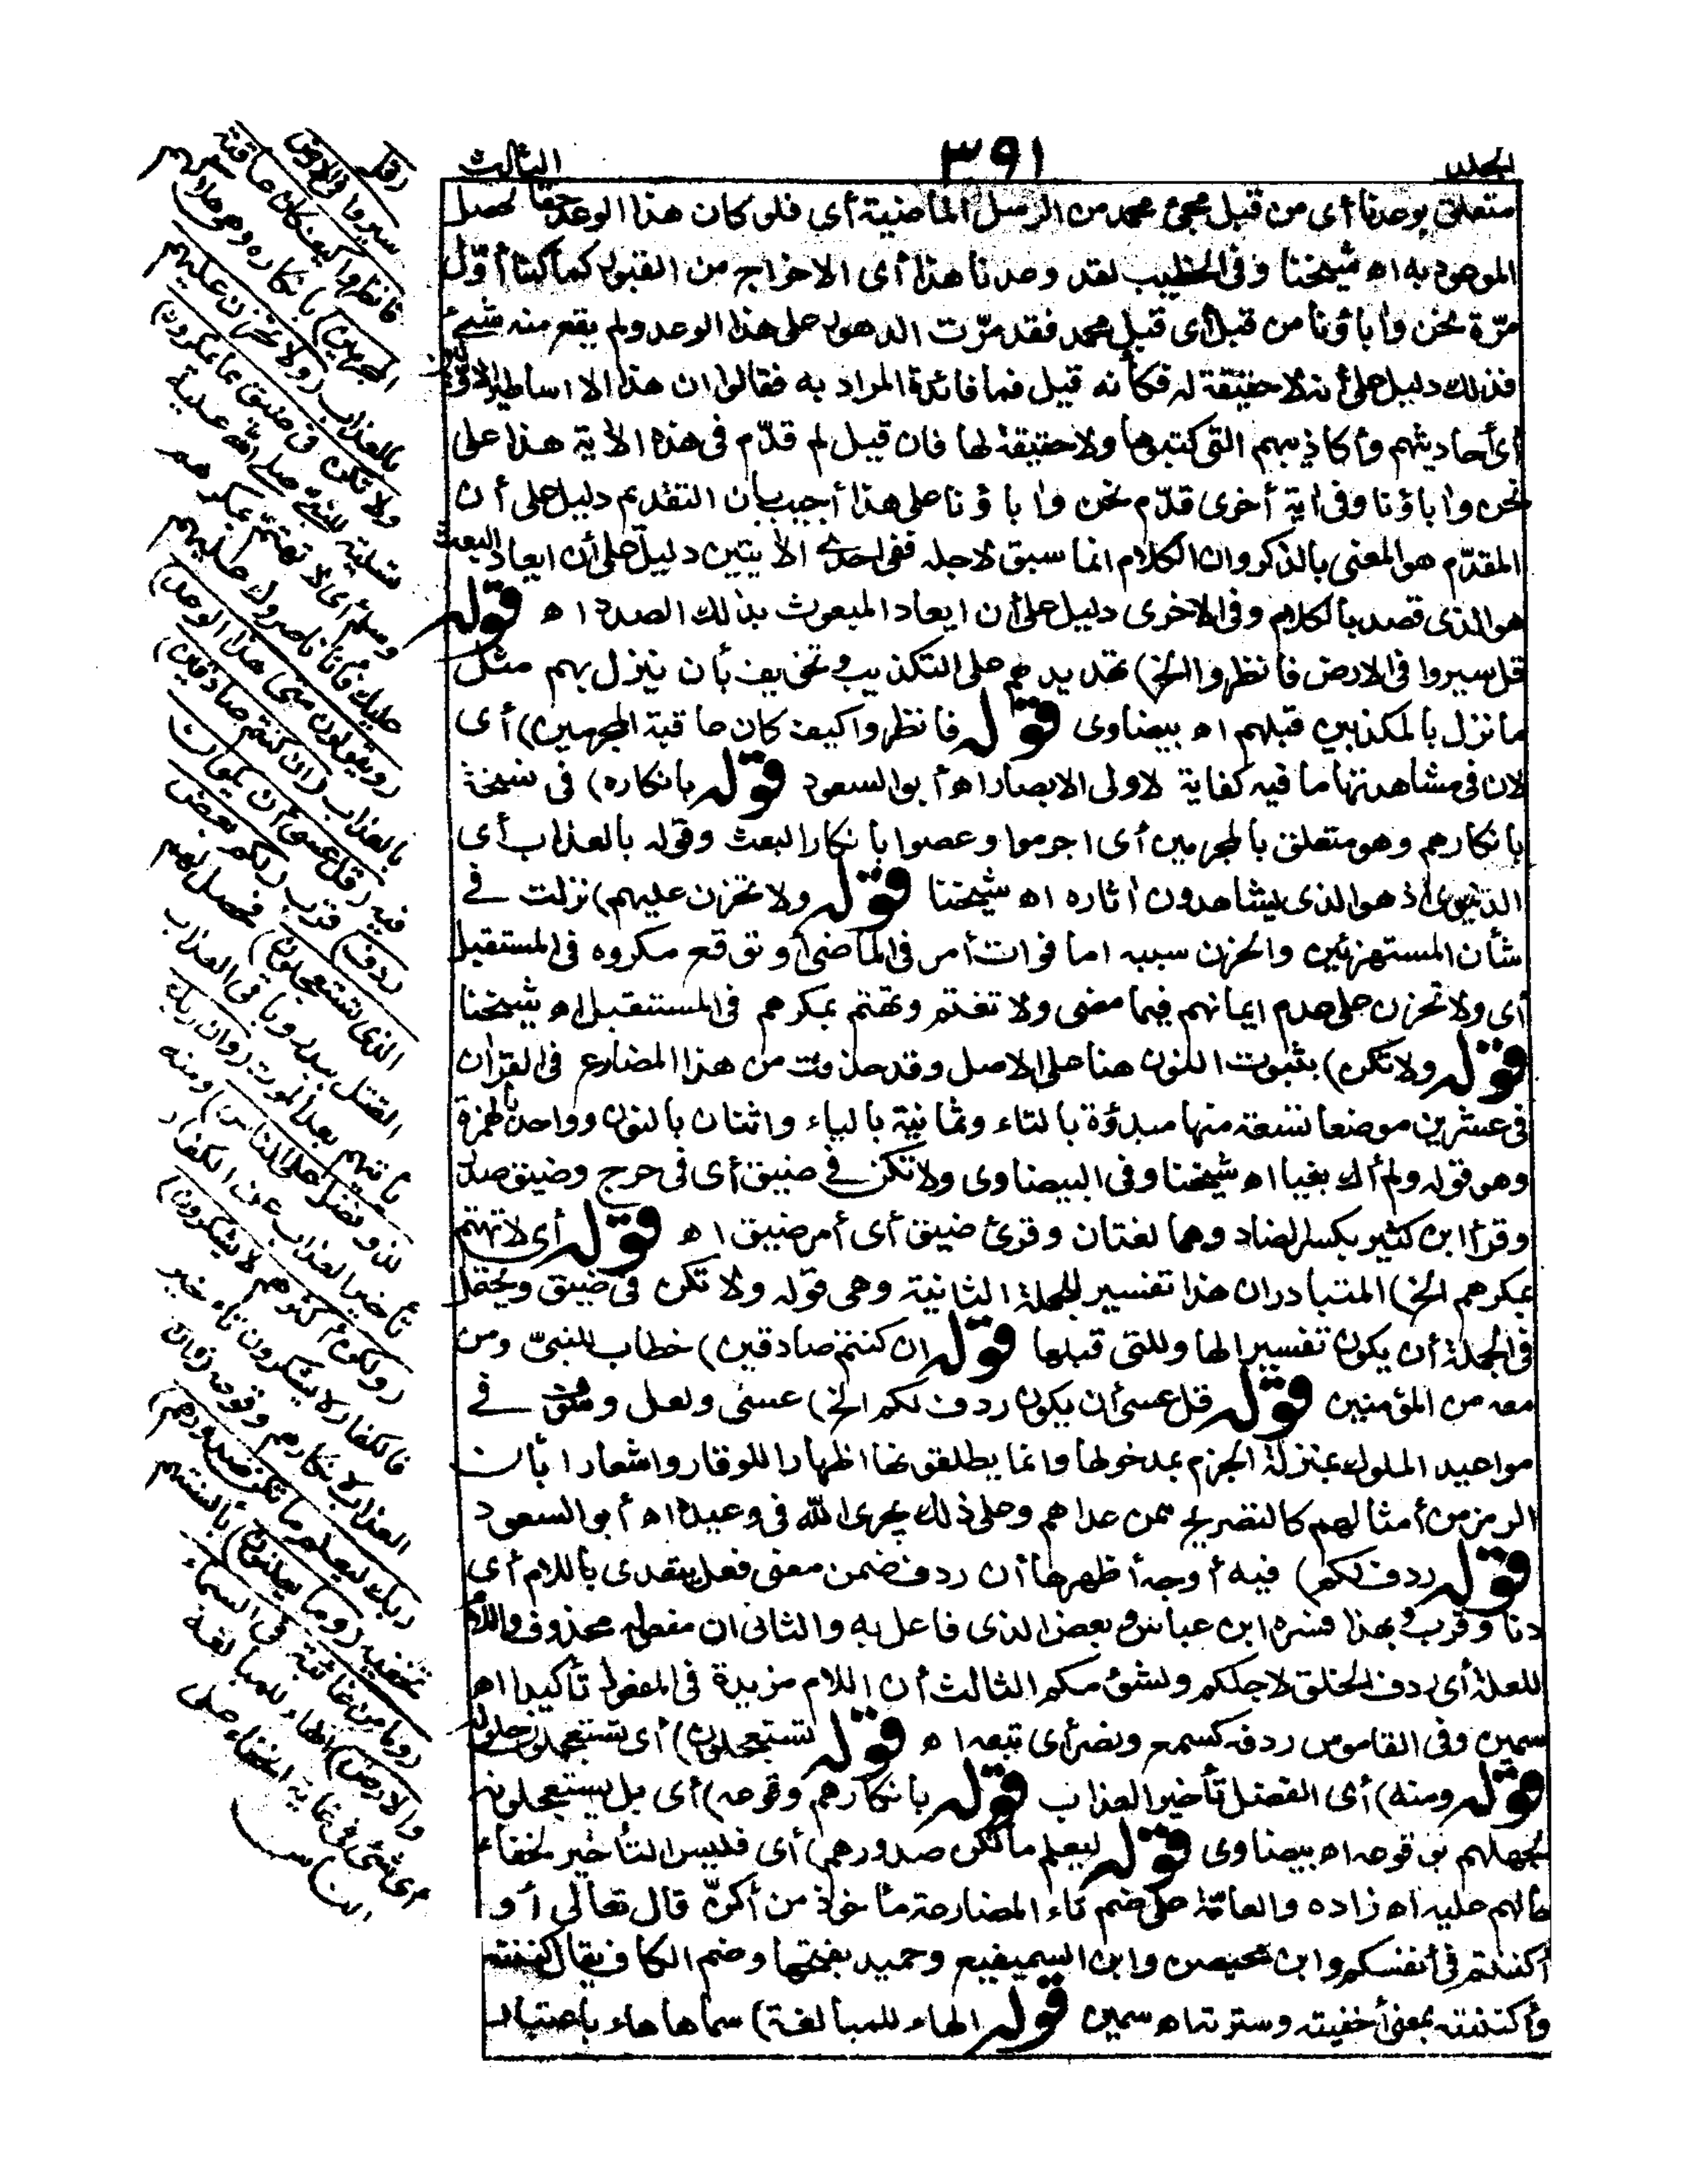 المجلد
٣٩١
الثالث
متعلق بوعدنا أى من قبل مجئ محمد من الرسل الماضية أى فلو كان هذا الوعد حقا لحصل
الموعود به اه شيخنا وفى الخطيب لقد وعدنا هذا أى الاخراج من القبور كما كنا أوّل
مرّة نحن وآباؤنا من قبل أى قبل محمد فقد مرّت الدهور على هذا الوعد ولم يقع منه شئ
فذلك دليل على أنه لا حقيقة له فكأنه قيل فما فائدة المراد به فقالوا ان هذا الا اساطير الاوّلين
أى أحاديثهم وأكاذيبهم التى كتبوها ولا حقيقة لها فان قيل لم قدّم فى هذه الآية هذا على
نحن وآباؤنا وفى آية أخرى قدّم نحن وآباؤنا على هذا أجيب بان التقديم دليل على أن
المقدّم هو المعنى بالذكر وان الكلام انما سبق لاجله ففى احدى الآيتين دليل على أن ايعاد البعث
هو الذى قصد بالكلام وفى الاخرى دليل على أن ايعاد المبعوث بذلك الصدد اه قوله
قل سيروا فى الارض فانظروا الخ) تهديد لهم على التكذيب وتخويف بأن ينزل بهم مثل
ما نزل بالمكذبين قبلهم اه بيضاوى قوله فانظروا كيف كان عاقبة المجرمين) أى
لان فى مشاهدتها ما فيه كفاية لاولى الابصار اه أبو السعود قوله بانكاره) فى نسخة
بانكارهم وهو متعلق بالمجرمين أى اجرموا وعصوا بانكار البعث وقوله بالعذاب أى
الدنيوى اذ هو الذى يشاهدون آثاره اه شيخنا قوله ولا تحزن عليهم) نزلت فى
شأن المستهزئين والحزن سببه اما فوات أمر فى الماضى أو توقع مكروه فى المستقبل
أى ولا تحزن على عدم ايمانهم فيما مضى ولا تغتم وتهتم بمكرهم فى المستقبل اه شيخنا
قوله ولا تكن) بثبوت النون هنا على الاصل وقد حذفت من هذا المضارع فى القرآن
فى عشرين موضعا تسعة منها مبدوّة بالتاء وثمانية بالياء واثنان بالنون وواحد بالهمزة
وهو قوله ولم أك بغيا اه شيخنا وفى البيضاوى ولا تكن فى ضيق أى فى حرج وضيق صدر
وقرأ ابن كثير بكسر الضاد وهما لغتان وقرئ ضيق أى أمر ضيق اه قوله أى لا تهتم
بمكرهم الخ) المتبادر ان هذا تفسير للجملة الثانية وهى قوله ولا تكن فى ضيق ويحتمل
فى الجملة أن يكون تفسيرا لها وللتى قبلها قوله ان كنتم صادقين) خطاب للنبىّ ومن
معه من المؤمنين قوله قل عسى أن يكون ردف لكم الخ) عسى ولعل وسوف فى
مواعيد الملوك بمنزلة الجزم بمدخولها وانما يطلقونها اظهارا للوقار واشعارا بأن
الرمز من أمثالهم كالتصريح ممن عداهم وعلى ذلك يجرى الله فى وعيده اه أبو السعود
قوله ردف لكم) فيه أوجه أظهرها أن ردف ضمن معنى فعل يتعدى باللام أى
دنا وقرب وبهذا فسره ابن عباس وبعض الذى فاعل به والثانى ان مفعوله محذوف واللام
للعلة أى ردف الخلق لاجلكم ولشؤمكم الثالث أن اللام مزيدة فى المفعول تأكيدا اه
سمين وفى القاموس ردفه كسمع ونصر أى تبعه اه قوله تستعجلون) أى تستعجلون حلوله
قوله ومنه) أى الفضل تأخير العذاب قوله بانكارهم وقوعه) أى بل يستعجلونه
لجهلهم بوقوعه اه بيضاوى قوله ليعلم ما تكن صدورهم) أى فليس التأخير لخفاء
حالهم عليه اه زاده والعامّة على ضم تاء المضارعة مأخوذ من أكنّ قال تعالى أو
أكننتم فى أنفسكم وابن محيصن وابن السميفيع وحميد بفتحها وضم الكاف يقال كننته
وأكننته بمعنى أخفيته وسترته اه سمين قوله الهاء للمبالغة) سماها هاء باعتبار
(قل
سيروا فى الارض
فانظروا كيف كان عاقبة
المجرمين) بانكاره وهو هلاكهم
بالعذاب (ولا تحزن عليهم
ولا تكن فى ضيق مما يمكرون)
تسلية للنبى صلى الله عليه
وسلم أى لا تهتم بمكرهم
عليك فأنا ناصرك عليهم
(ويقولون متى هذا الوعد)
بالعذاب (ان كنتم صادقين)
فيه (قل عسى أن يكون
ردف) قرب (لكم بعض
الذى تستعجلون) فحصل لهم
القتل ببدر وباقى العذاب
يأتيهم بعد الموت (وان ربك
لذو فضل على الناس) ومنه
تأخير العذاب عن الكفار
(ولكن أكثرهم لا يشكرون)
فالكفار لا يشكرون تأخير
العذاب لانكارهم وقوعه (وان
ربك ليعلم ما تكن صدورهم)
تخفيه (وما يعلنون) بألسنتهم
(وما من غائبة فى السماء
والارض) الهاء للمبالغة
أى شئ فى غاية الخفاء على
الناس